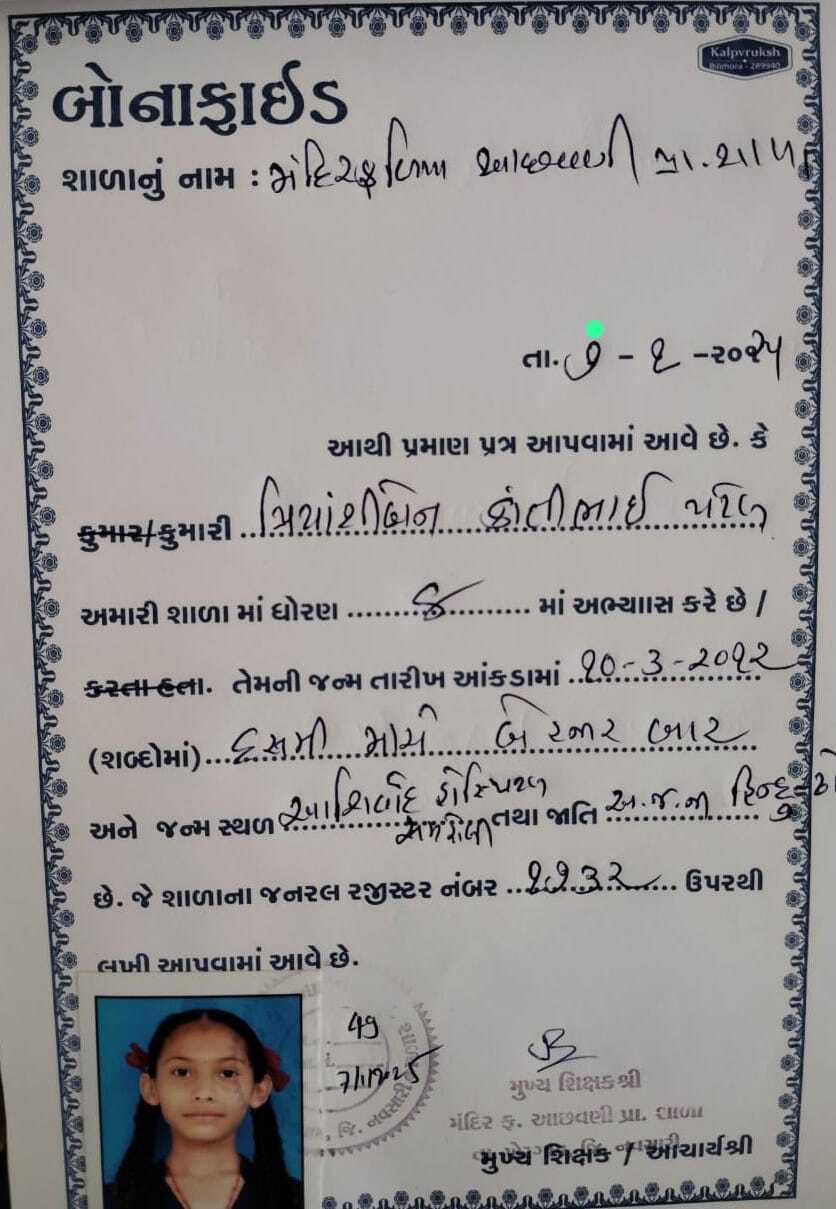 Kalpvruksh
Bilimora - 289940
બોનાફાઈડ
શાળાનું નામ : મંદિર ફળિયા આછવણી પ્રા. શાળા
તા. ૭ - ૧ -૨૦૨૫
આથી પ્રમાણ પત્ર આપવામાં આવે છે. કે
કુમાર/કુમારી .. પ્રિયાંશીબેન કાંતીભાઈ પટેલ
અમારી શાળા માં ધોરણ ........ ૭ .......... માં અભ્યાાસ કરે છે /
કરતા હતા. તેમની જન્મ તારીખ આંકડામાં .. ૧૦-૩-૨૦૧૨
(શબ્દોમાં)... દસમી માર્ચ બે હજાર બાર
અને જન્મ સ્થળ આશિર્વાદ હોસ્પિટલ તથા જાતિ અ.જ.ના હિન્દુ
છે. જે શાળાના જનરલ રજીસ્ટર નંબર .. ૧૭૩૨ .... ઉપરથી
લખી આપવામાં આવે છે.
49
7/1/2025
જિ. નવસારી
મુખ્ય શિક્ષકશ્રી
મંદિર ફ. આછવણી પ્રા. શાળા
મુખ્ય શિક્ષક / આચાર્યશ્રી